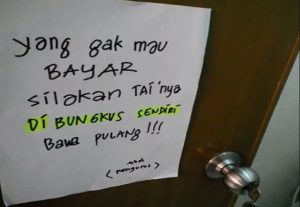 yang gak mau
BAYAR
silakan TAi'nya
DI BUNGKUS SENDIRI
Bawa PULANG!!!
ttd
(pengurus)